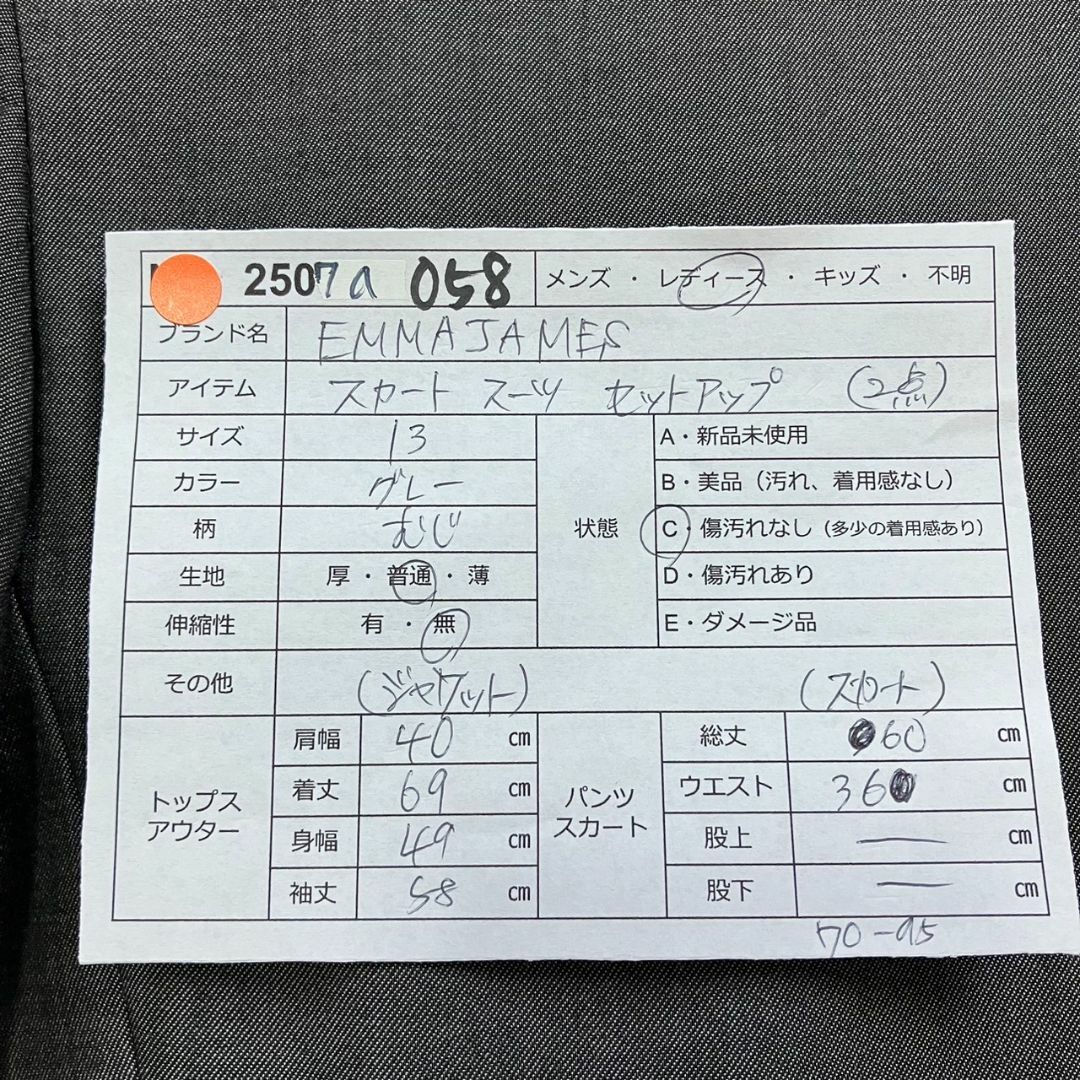 2507a 058 メンズ ・ レディース ・ キッズ ・ 不明
ブランド名 EMMAJAMES
アイテム スカート スーツ セットアップ (2点)
サイズ 13
カラー グレー
柄 むじ
生地 厚 ・ 普通 ・ 薄
伸縮性 有 ・ 無
状態
A・新品未使用
B・美品（汚れ、着用感なし）
C・傷汚れなし（多少の着用感あり）
D・傷汚れあり
E・ダメージ品
その他 (ジャケット) (スカート)
トップス
アウター
肩幅 40 cm
着丈 69 cm
身幅 49 cm
袖丈 58 cm
パンツ
スカート
総丈 60 cm
ウエスト 36 cm
股上 — cm
股下 — cm
70-95